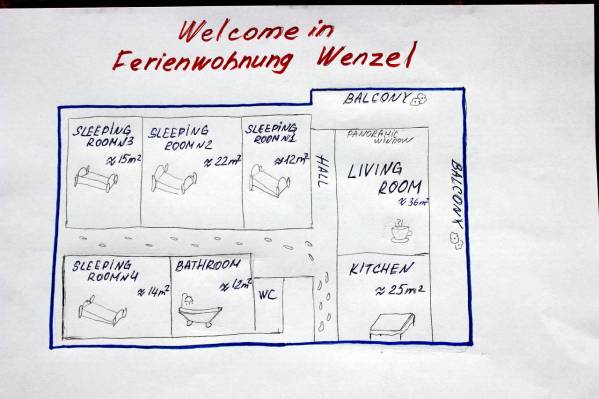 Welcome in
Ferienwohnung Wenzel
BALCONY
SLEEPING
ROOM N3
≈ 15 m²
SLEEPING
ROOM N2
≈ 22 m²
SLEEPING
ROOM N1
≈ 12 m²
HALL
PANORAMIC
WINDOW
LIVING
ROOM
≈ 36 m²
BALCONY
SLEEPING
ROOM N4
≈ 14 m²
BATHROOM
≈ 12 m²
WC
KITCHEN
≈ 25 m²